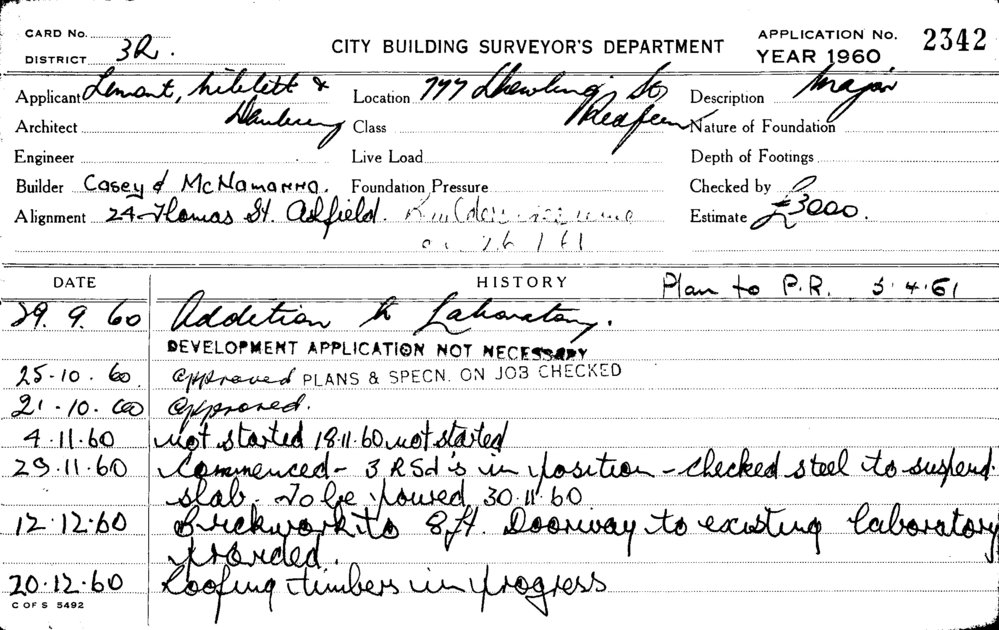 CARD No.
DISTRICT 3R.
CITY BUILDING SURVEYOR'S DEPARTMENT
APPLICATION No. 2342
YEAR 1960
Applicant Lemont, Niblett &
Location 777 St,
Description Major
Architect
Class Redfern
Nature of Foundation
Engineer
Live Load
Depth of Footings
Builder Casey & McNamarra.
Foundation Pressure
Checked by
Alignment 24 Thomas St. Ashfield.
Estimate £3000.
DATE HISTORY Plan to P.R. 5.4.61
29.9.60 Addition to Laboratory.
DEVELOPMENT APPLICATION NOT NECESSARY
25-10.60. approved PLANS & SPECN. ON JOB CHECKED
21-10.60 approved.
4.11.60 not started 18.11.60 not started
29.11.60 Commenced - 3 RSJ's in position - checked steel to suspend.
slab. To be poured 30.11.60
12.12.60 Brickwork to 8ft. Doorway to existing laboratory
provided.
20.12.60 Roofing timbers in progress
C OF S 5492